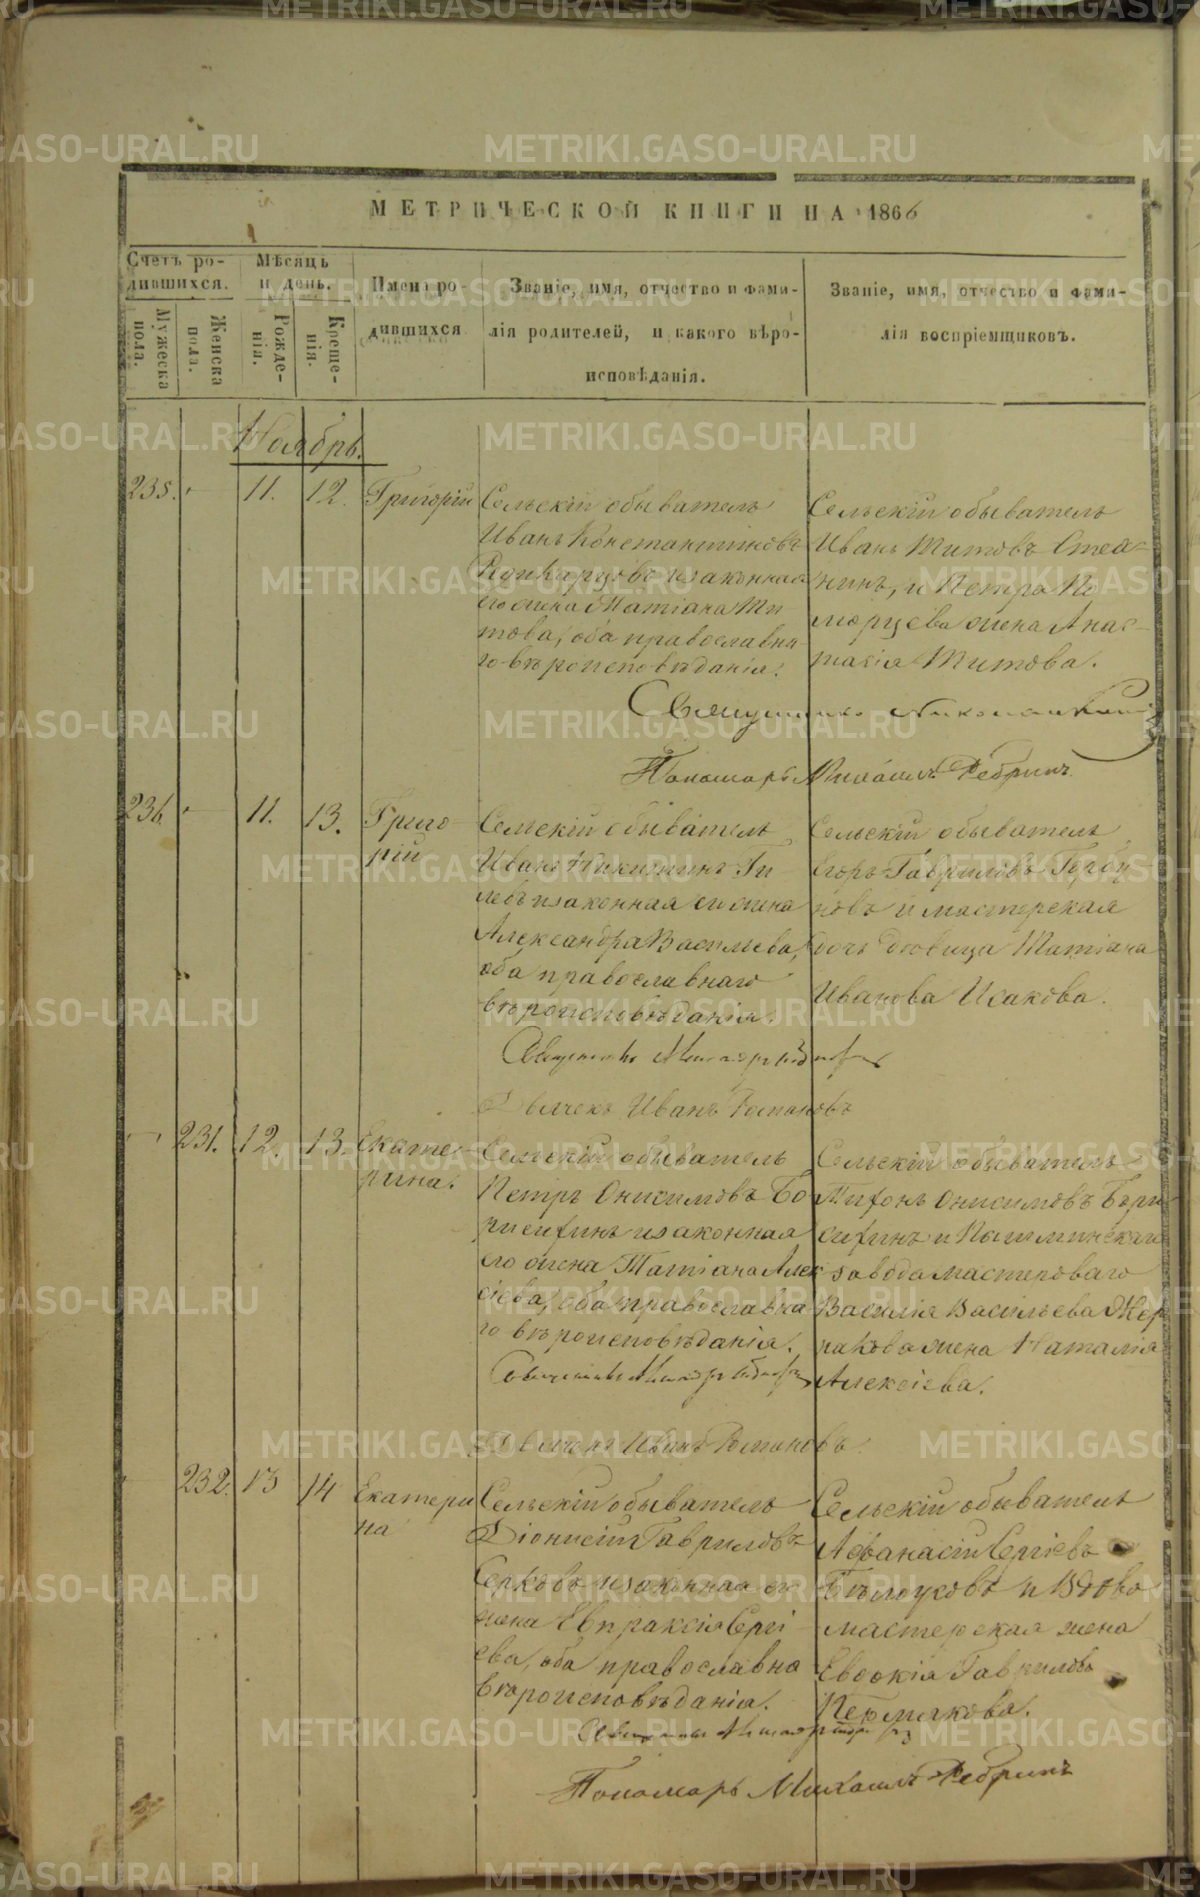 МЕТРИЧЕСКОЙ КНИГИ НА 1866
Счетъ ро-
дившихся.
Мѣсяцъ
и день.
Имена ро-
дившихся
Званіе, имя, отчество и фами-
лія родителей, и какого вѣро-
исповѣданія.
Званіе, имя, отчество и фами-
лія воспріемщиковъ.
Мужеска
пола.
Женска
пола.
Рожде-
нія.
Креще-
нія.
Ноябрь.
235. 11. 12. Григорій
Сельскій обыватель
Иванъ Константиновъ
и законная
его жена Татіана Ти
това, оба православна
го вѣроисповѣданія.
Сельскій обыватель
Иванъ Титовъ Стеа-
нинъ, и Петра По
морцева жена Анас-
тасія Титова.
Священникъ
Пономарь Михаилъ Ребринъ.
236. 11. 13. Григо-
рій
Сельскій обыватель
Иванъ Никитинъ Ги
левъ и законная его жена
Александра Васильева,
оба православнаго
вѣроисповѣданія.
Сельскій обыватель
Егоръ Гавриловъ Горбу
новъ и мастерская
дочь дѣвица Татіана
Иванова Исакова.
Священникъ
Дьячекъ Иванъ Романовъ
231. 12. 13. Екате-
рина.
Сельскій обыватель
Петръ Онисимовъ Бо
рисихинъ и законная
его жена Татіана Алек
сіева, оба православна
го вѣроисповѣданія.
Сельскій обыватель
Тихонъ Онисимовъ Бори
сихинъ и Пышминскаго
завода мастероваго
Василія Васильева Жер
накова жена Наталія
Алексіева.
Священникъ
Дьячекъ Иванъ Романовъ.
232. 13 14 Екатери
на
Сельскій обыватель
Діонисій Гавриловъ
Серковъ и законная его
жена Евпраксія Сергі
ева, оба православна
вѣроисповѣданія.
Сельскій обыватель
Афанасій Сергіевъ
Бѣлоусовъ и вдова
мастерская жена
Евдокія Гаврилова
Пермякова.
Священникъ
Пономарь Михаилъ Ребринъ
METRIKI.GASO-URAL.RU